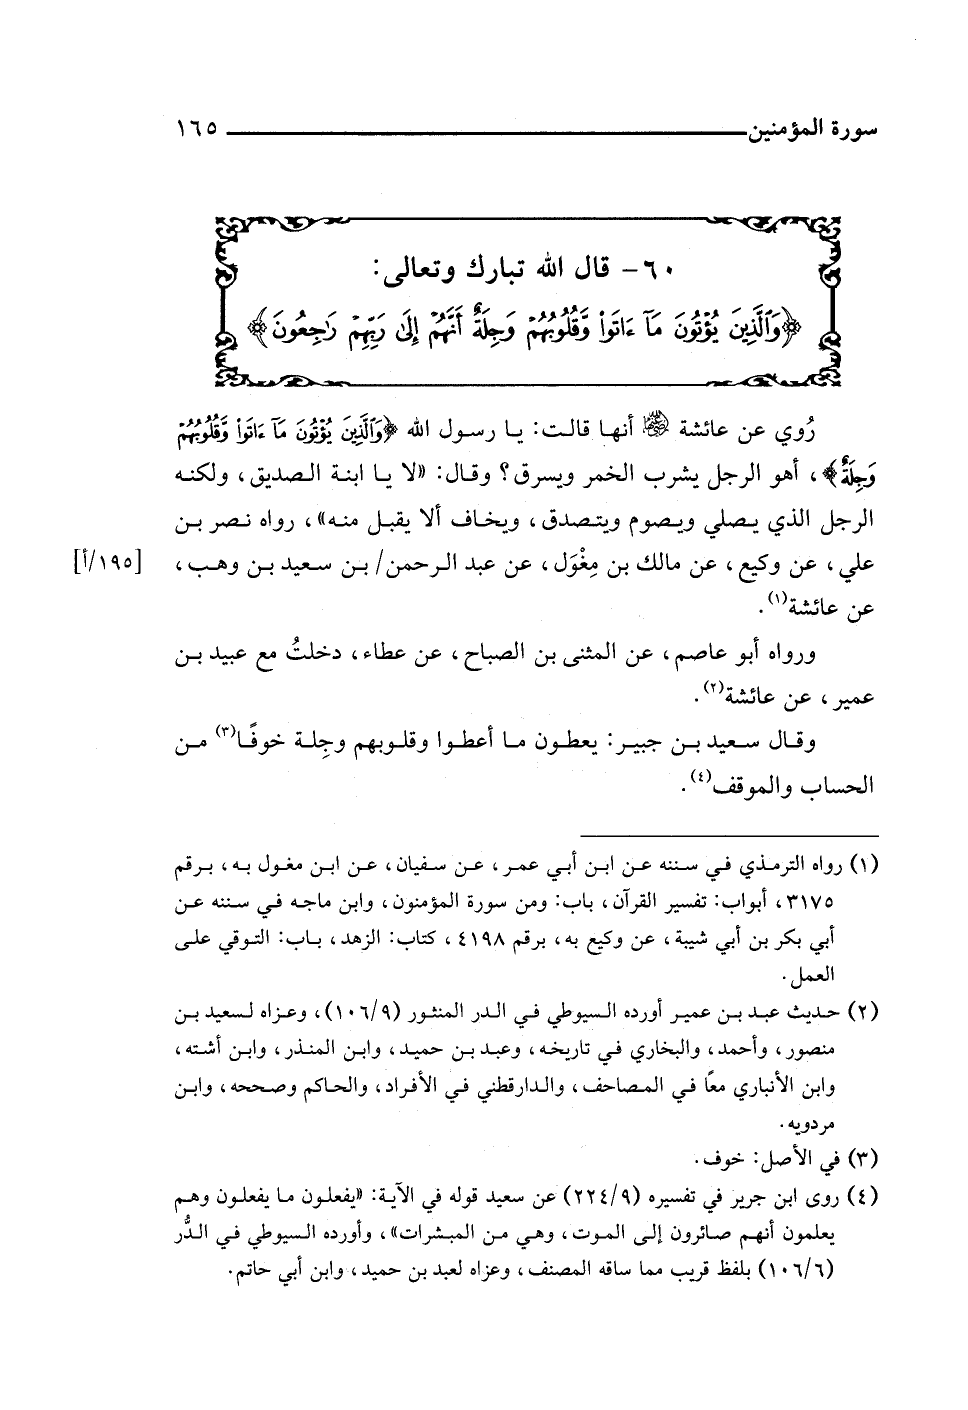 سورة المؤمنين ١٦٥
٦٠- قال الله تبارك وتعالى:
﴿وَٱلَّذِينَ يُؤْتُونَ مَآ ءَاتَوا۟ وَّقُلُوبُهُمْ وَجِلَةٌ أَنَّهُمْ إِلَىٰ رَبِّهِمْ رَٰجِعُونَ﴾
رُوي عن عائشة أنها قالت: يا رسول الله ﴿وَٱلَّذِينَ يُؤْتُونَ مَآ ءَاتَوا۟ وَّقُلُوبُهُمْ
وَجِلَةٌ﴾، أهو الرجل يشرب الخمر ويسرق؟ وقال: «لا يا ابنة الصديق، ولكنه
الرجل الذي يصلي ويصوم ويتصدق، ويخاف ألا يقبل منه»، رواه نصر بن
علي، عن وكيع، عن مالك بن مِغْوَل، عن عبد الرحمن/ بن سعيد بن وهب، [١٩٥/أ]
عن عائشة(١).
ورواه أبو عاصم، عن المثنى بن الصباح، عن عطاء، دخلتُ مع عبيد بن
عمير، عن عائشة(٢).
وقال سعيد بن جبير: يعطون ما أعطوا وقلوبهم وجِلة خوفًا(٣) من
الحساب والموقف(٤).
(١) رواه الترمذي في سننه عن ابن أبي عمر، عن سفيان، عن ابن مغول به، برقم
٣١٧٥، أبواب: تفسير القرآن، باب: ومن سورة المؤمنون، وابن ماجه في سننه عن
أبي بكر بن أبي شيبة، عن وكيع به، برقم ٤١٩٨، كتاب: الزهد، باب: التوقي على
العمل.
(٢) حديث عبد بن عمير أورده السيوطي في الدر المنثور (١٠٦/٩)، وعزاه لسعيد بن
منصور، وأحمد، والبخاري في تاريخه، وعبد بن حميد، وابن المنذر، وابن أشته،
وابن الأنباري معًا في المصاحف، والدارقطني في الأفراد، والحاكم وصححه، وابن
مردويه.
(٣) في الأصل: خوف.
(٤) روى ابن جرير في تفسيره (٢٢٤/٩) عن سعيد قوله في الآية: «يفعلون ما يفعلون وهم
يعلمون أنهم صائرون إلى الموت، وهي من المبشرات»، وأورده السيوطي في الدُّر
(١٠٦/٦) بلفظ قريب مما ساقه المصنف، وعزاه لعبد بن حميد، وابن أبي حاتم.